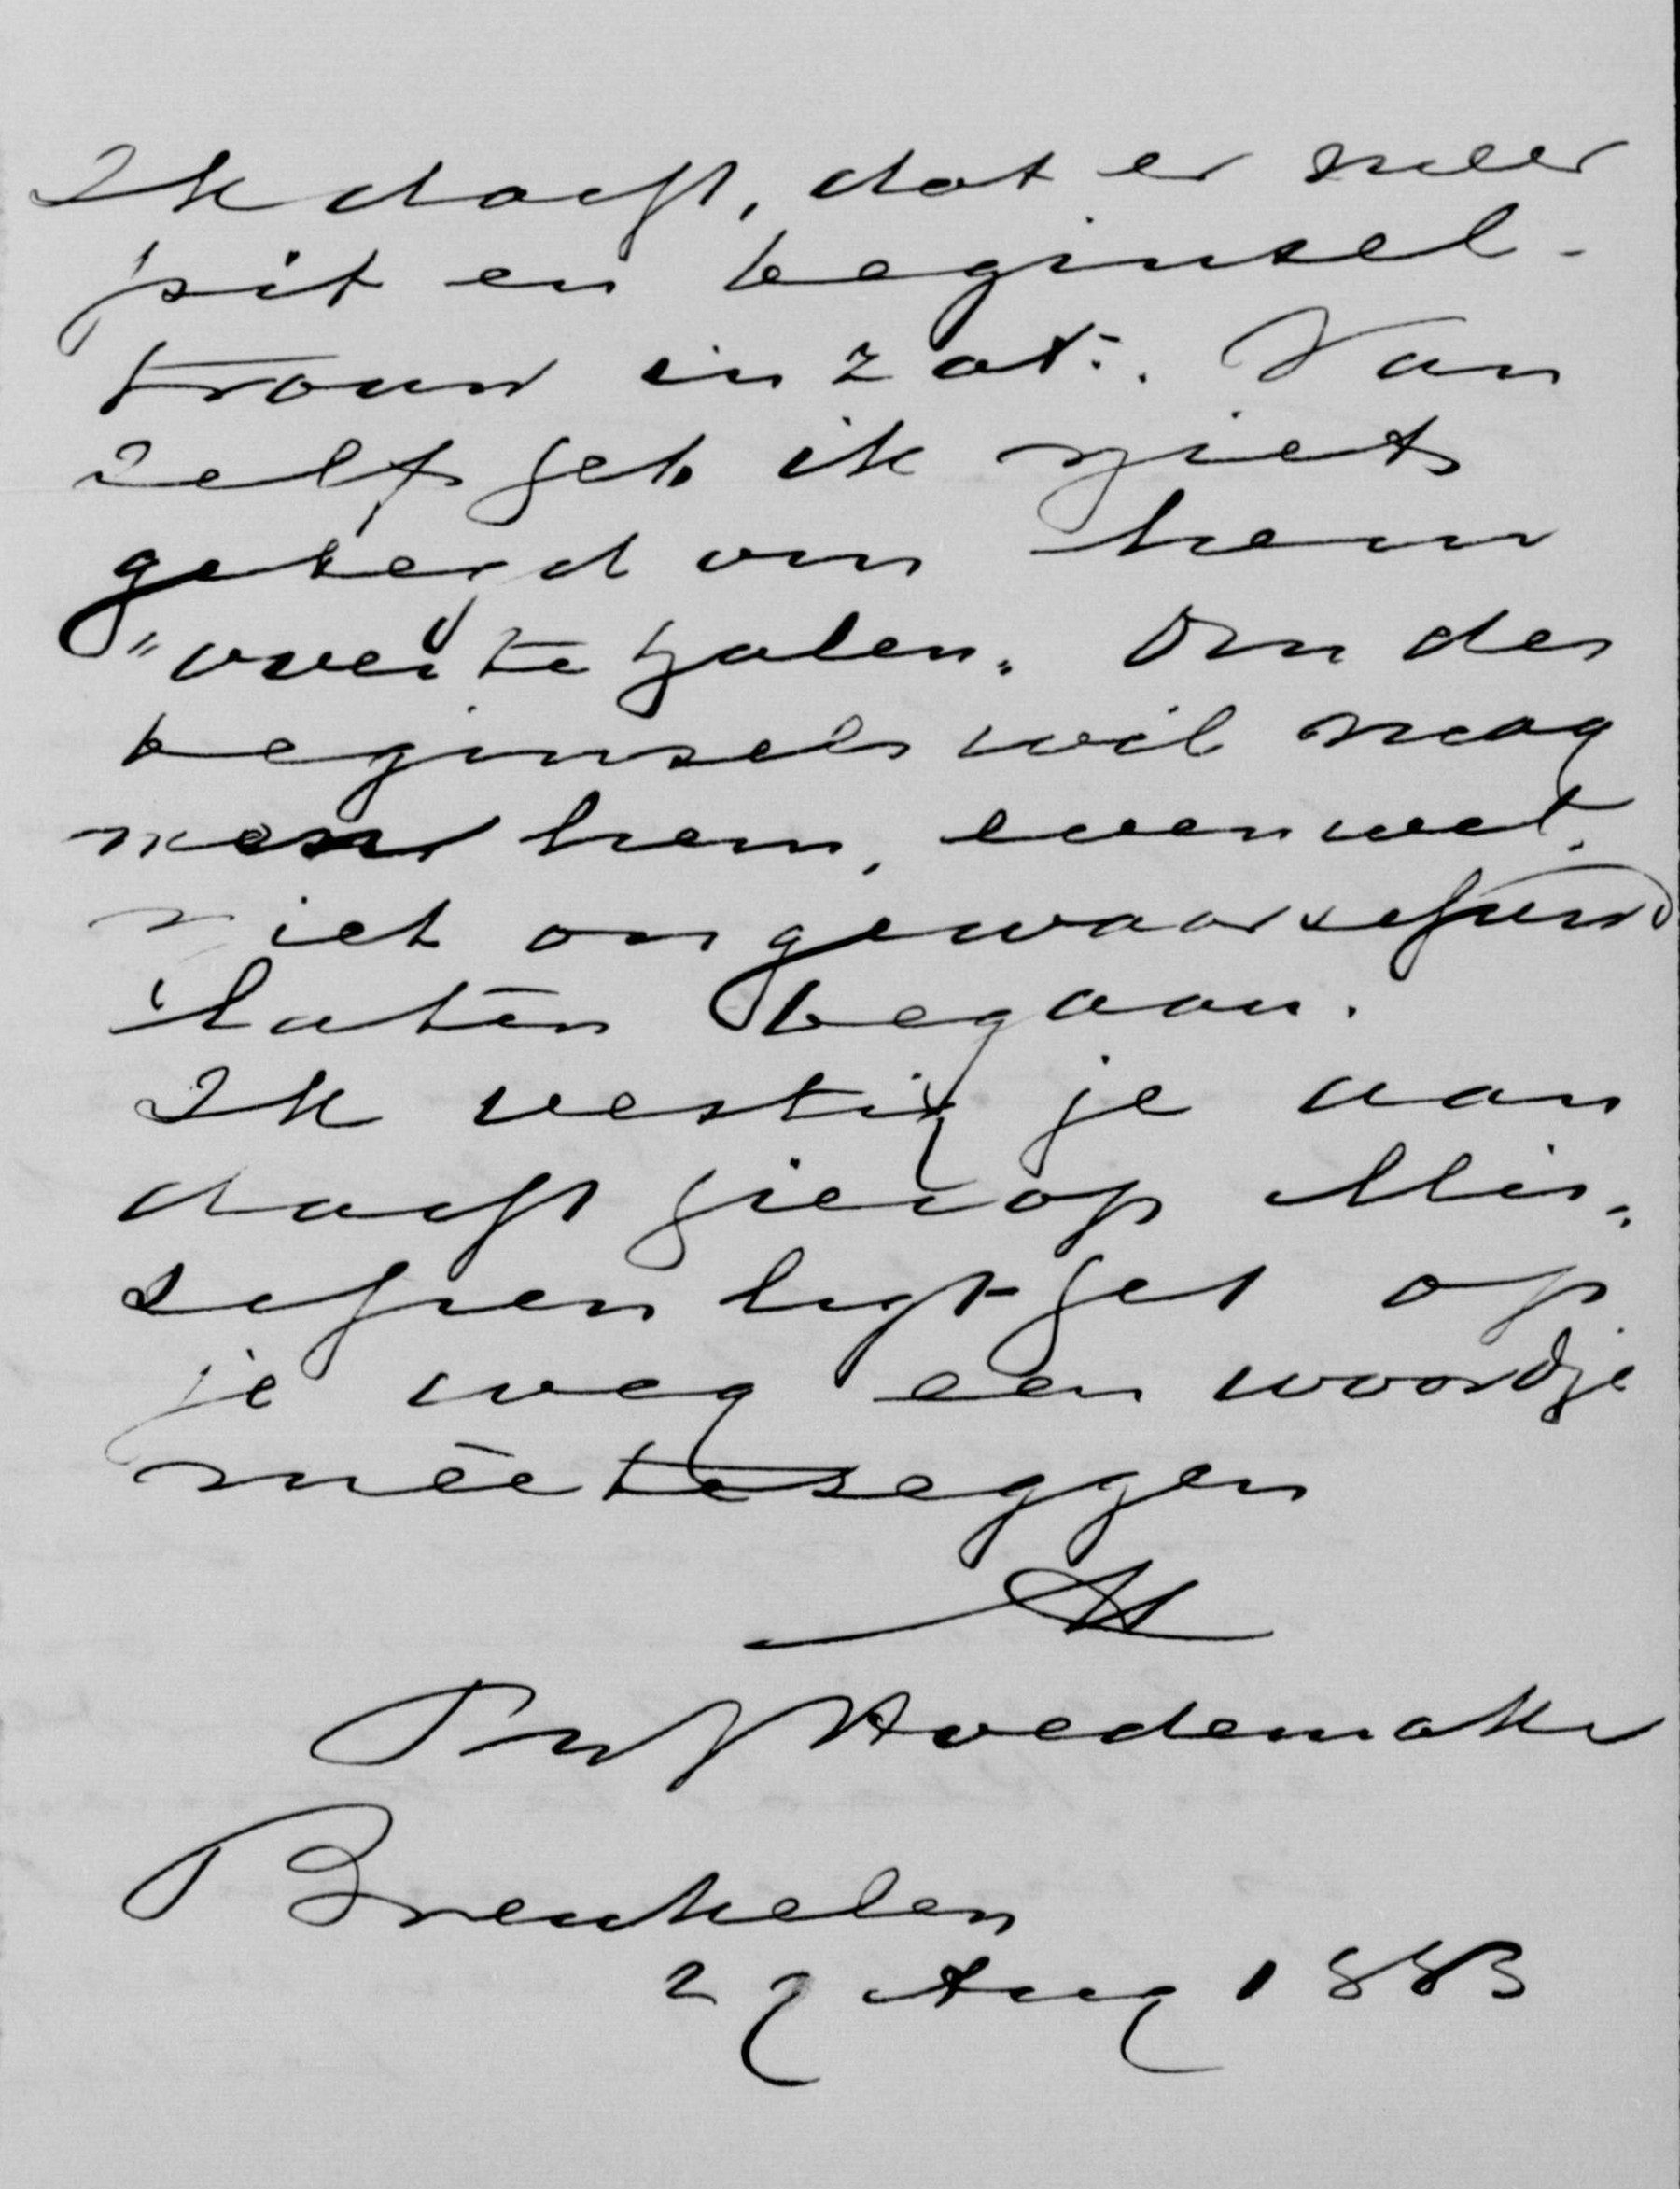 Ik dacht, dat er meer
pit en beginsel-
trouw in zat. Van
zelf heb ik niets
gezegd om hem
"over te halen". Om des
beginsels wil mag
men hem, evenwel,
niet ongewaarschuwd
laten begaan.
Ik vestig je aan
dacht hierop Mis„
schien ligt het op
je weg een woordje
mêe te zeggen
tt
PhJHoedemaker
Breukelen
27 Aug 1883